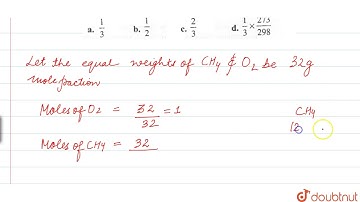 a. 1/3 b. 1/2 c. 2/3 d. 1/3 × 273/298
Let the equal weights of CH4 & O2 be 32g
mole fraction
Moles of O2 = 32/32 = 1
CH4
12
Moles of CH4 = 32
doubtnut